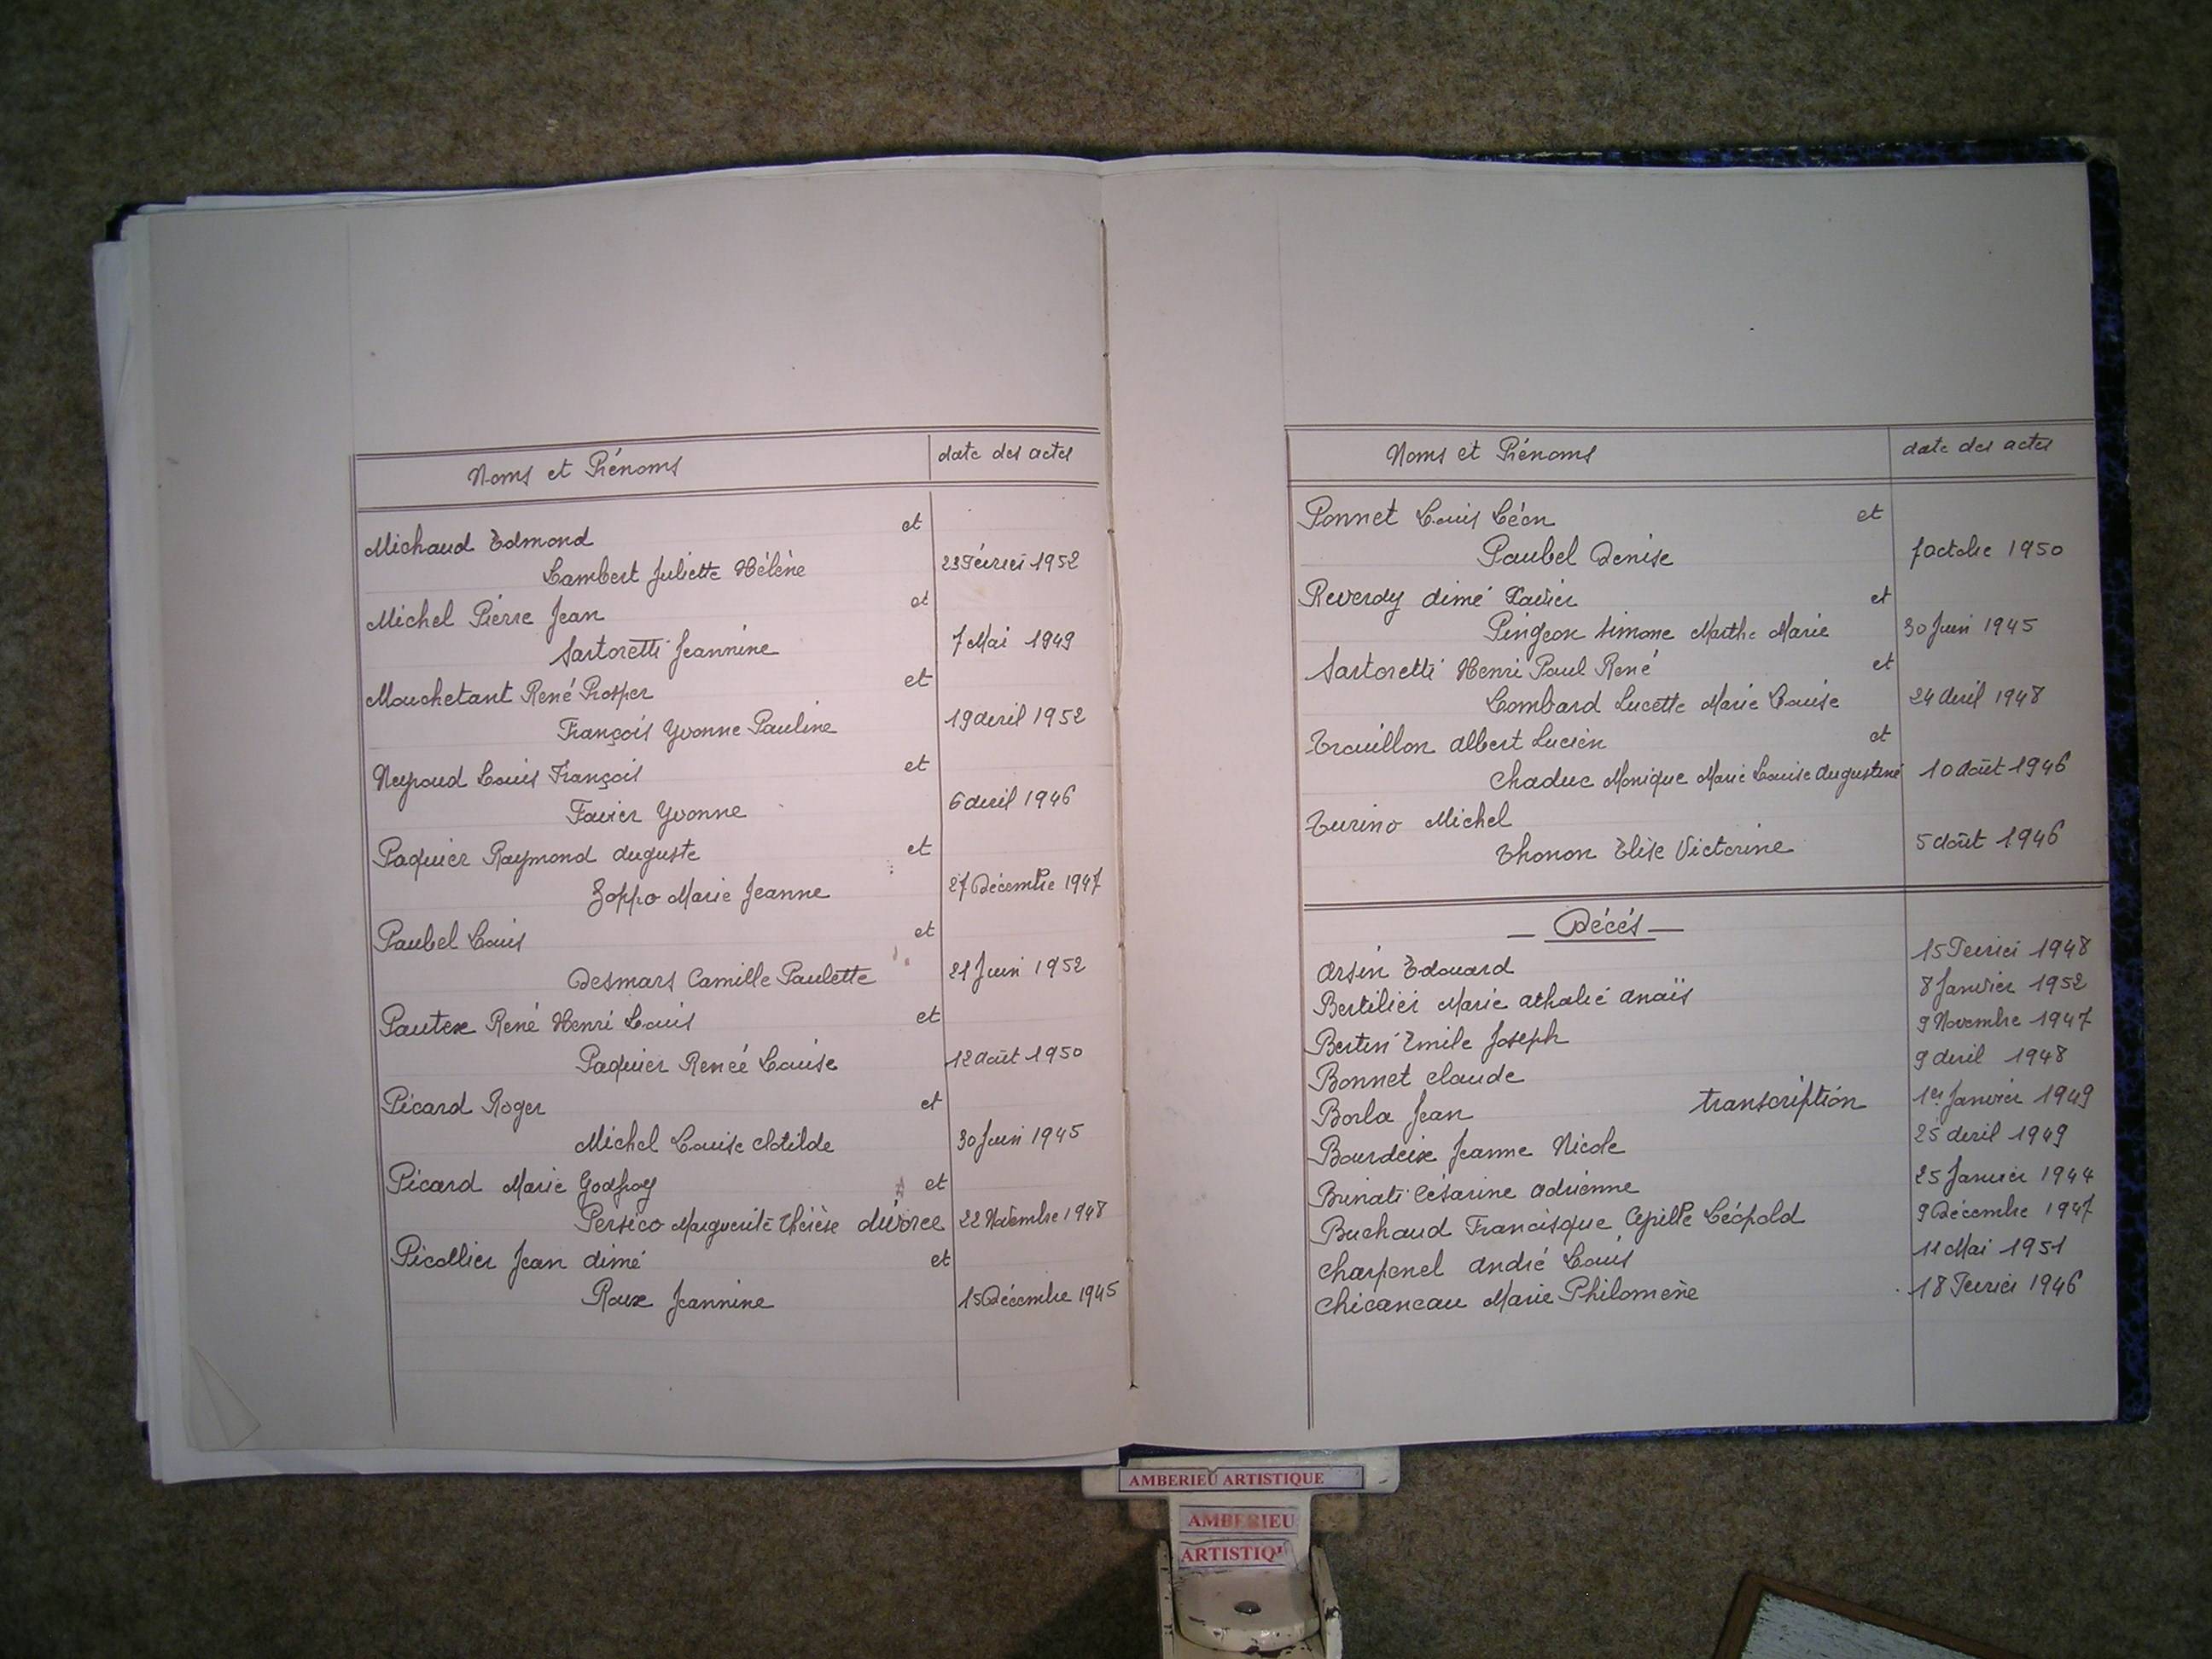 Noms et Prénoms date des actes
Michaud Edmond et
Lambert Juliette Hélène 23 Février 1952
Michel Pierre Jean et
Sartoretti Jeannine 7 Mai 1949
Mouchetant René Prosper et
François Yvonne Pauline 19 Avril 1952
Neyroud Louis François et
Favier Yvonne 6 Avril 1946
Paquier Raymond Auguste et
Zoppo Marie Jeanne 27 Décembre 1947
Paubel Louis et
Desmars Camille Paulette 21 Juin 1952
Pautex René Henri Louis et
Paquier Renée Louise 12 Août 1950
Picard Roger et
Michel Louise Clotilde 30 Juin 1945
Picard Marie Godfroy et
Persico Marguerite Thérèse divorce 22 Novembre 1948
Picollier Jean Aimé et
Roux Jeannine 15 Décembre 1945
Noms et Prénoms date des actes
Ponnet Louis Léon et
Paubel Denise 7 Octobre 1950
Reverdy Aimé Xavier et
Pingeon Simone Marthe Marie 30 Juin 1945
Sartoretti Henri Paul René et
Lombard Lucette Marie Louise 24 Avril 1948
Trouillon Albert Lucien et
Chaduc Monique Marie Louise Augustine 10 Août 1946
Turino Michel
Thonon Elise Victorine 5 Août 1946
— Décés —
Arsin Edouard 15 Fevrier 1948
Bertilier Marie Athalie Anaïs 8 Janvier 1952
Bertin Emile Joseph 9 Novembre 1947
Bonnet Claude 9 Avril 1948
Borla Jean transcription 1er Janvier 1949
Bourdeix Jeanne Nicole 25 Avril 1949
Brinati Césarine Adrienne 25 Janvier 1944
Buchaud Francisque Léopold 9 Décembre 1947
Charpenel André Louis 11 Mai 1951
Chicancau Marie Philomène 18 Fevrier 1946
AMBERIEU ARTISTIQUE
AMBERIEU
ARTISTIQU